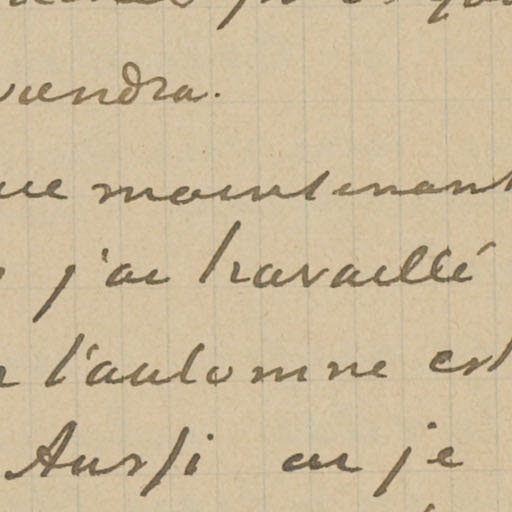 viendra.
maintenant
j'ai travaillé
l'automne est
Aussi ai je